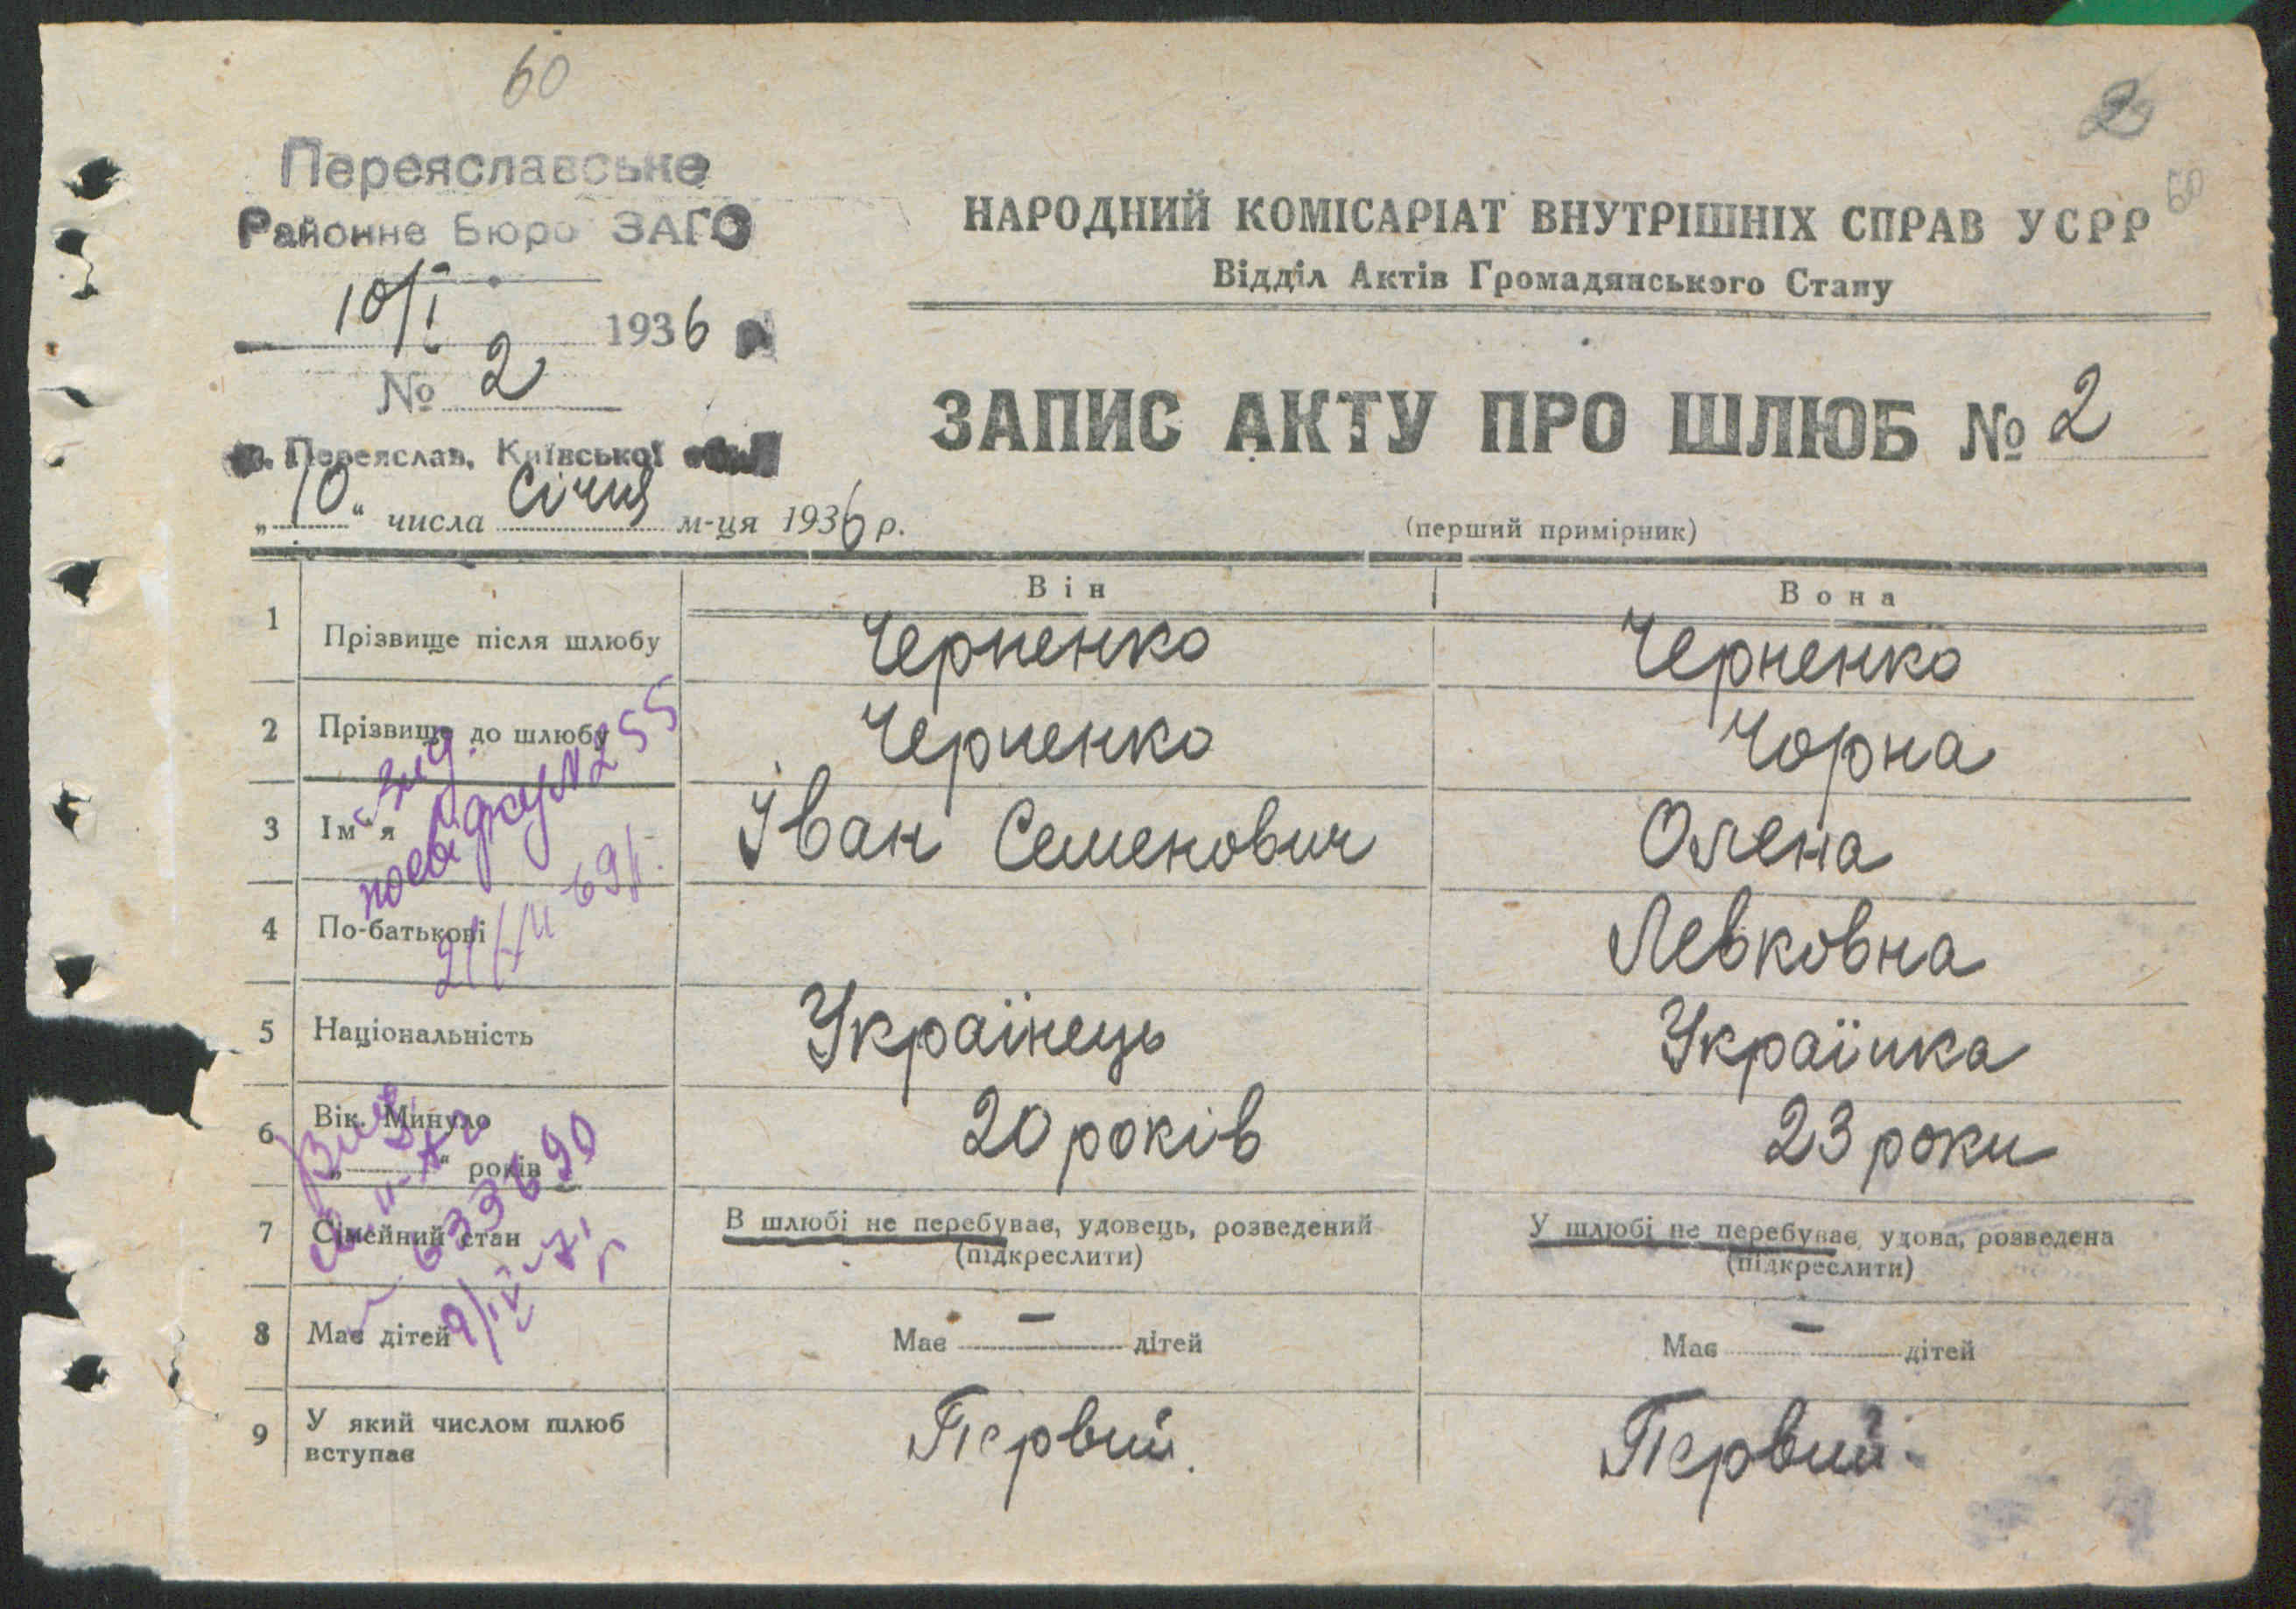 60
2
60
Переяславське
Районне Бюро ЗАГС
10/I 1936 р
№ 2
м. Переяслав, Київської
„10“ числа Січня м-ця 1936 р.
НАРОДНИЙ КОМІСАРІАТ ВНУТРІШНІХ СПРАВ УСРР
Відділ Актів Громадянського Стану
ЗАПИС АКТУ ПРО ШЛЮБ № 2
(перший примірник)
Він Вона
1 Прізвище після шлюбу Черненко Черненко
2 Прізвище до шлюбу Черненко Чорна
3 Ім'я Іван Семенович Олена
4 По-батькові Левковна
5 Національність Українець Українка
6 Вік. Минуло
„ “ років 20 років 23 роки
7 Сімейний стан В шлюбі не перебував, удовець, розведений
(підкреслити)
У шлюбі не перебуває, удова, розведена
(підкреслити)
8 Має дітей Має — дітей Має — дітей
9 У який числом шлюб
вступає Первий. Первий.
№ 255
69 г.
633690
9/IV-71 г